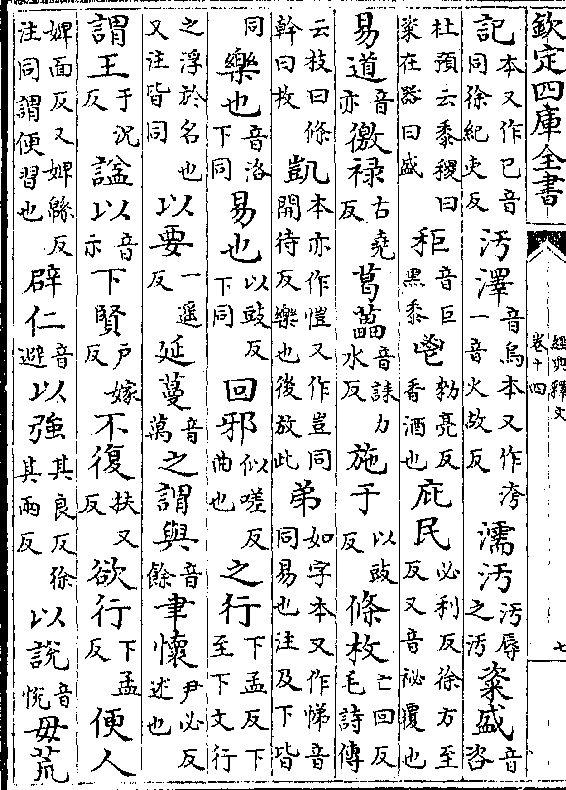 欽定四庫全書
經典釋文
卷十四
七
記本又作已音同徐紀吏反汚澤音烏本又作洿一音火故反濡汚汚辱之汚粢盛音咨
杜預云黍稷曰粢在器曰盛秬音巨黑黍鬯勑亮反香酒也庇民必利反徐方至反又音祕覆也
易道音亦徼禄古堯反葛藟音誄力水反施于以豉反條枚亡回反毛詩傳
云枝曰條幹曰枚凱本亦作愷又作豈同開待反樂也後放此弟如字本又作悌音同易也注及下皆
同樂也音洛下同易也以豉反下同回邪似嗟反曲也之行下孟反下至下文行
之浮於名也又注皆同以要一遥反延蔓音萬之謂與音餘聿懷尹必反述也
謂王于况反諡以音示下賢户嫁反不復扶又反欲行下孟反便人
婢面反又婢緜反注同謂便習也辟仁音避以強其良反徐其兩反以説音悦毋荒